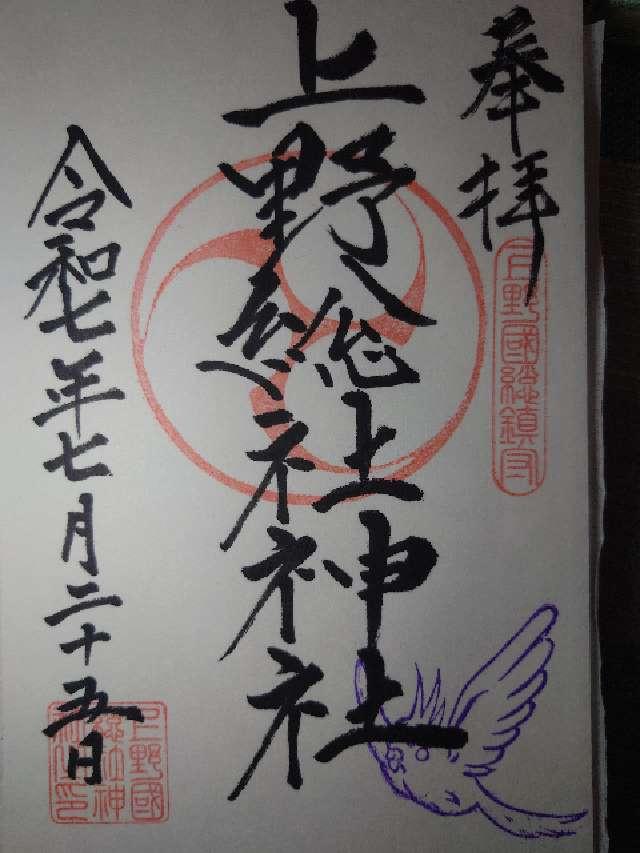 奉拝
上野國総鎮守
上野総社神社
令和七年七月二十五日
上野國
総社神
社之印